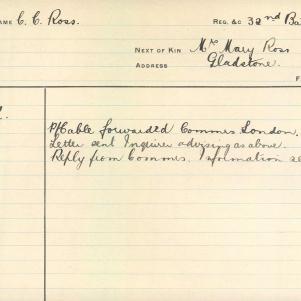 NAME C. C. Ross. REG. &C 32nd Ba
NEXT OF KIN Mrs Mary Ross
ADDRESS Gladstone.
F
P/Cable forwarded Commrs London.
Letter sent Enquirer advising as above.
Reply from Commrs. Information re